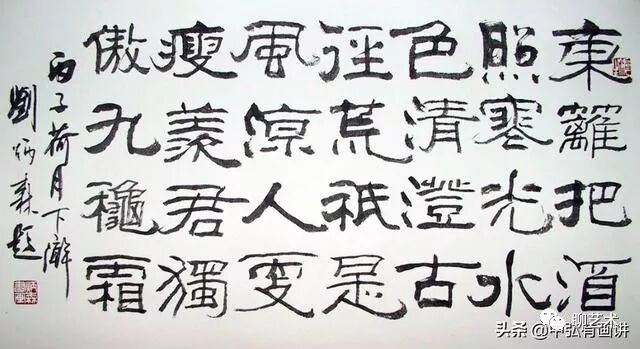 東籬把酒
照寒光水
色清澄古
徑荒祇是
風涼人更
瘦羨君獨
傲九龝霜
丙子荷月下澣
劉炳森題
聊艺术
头条